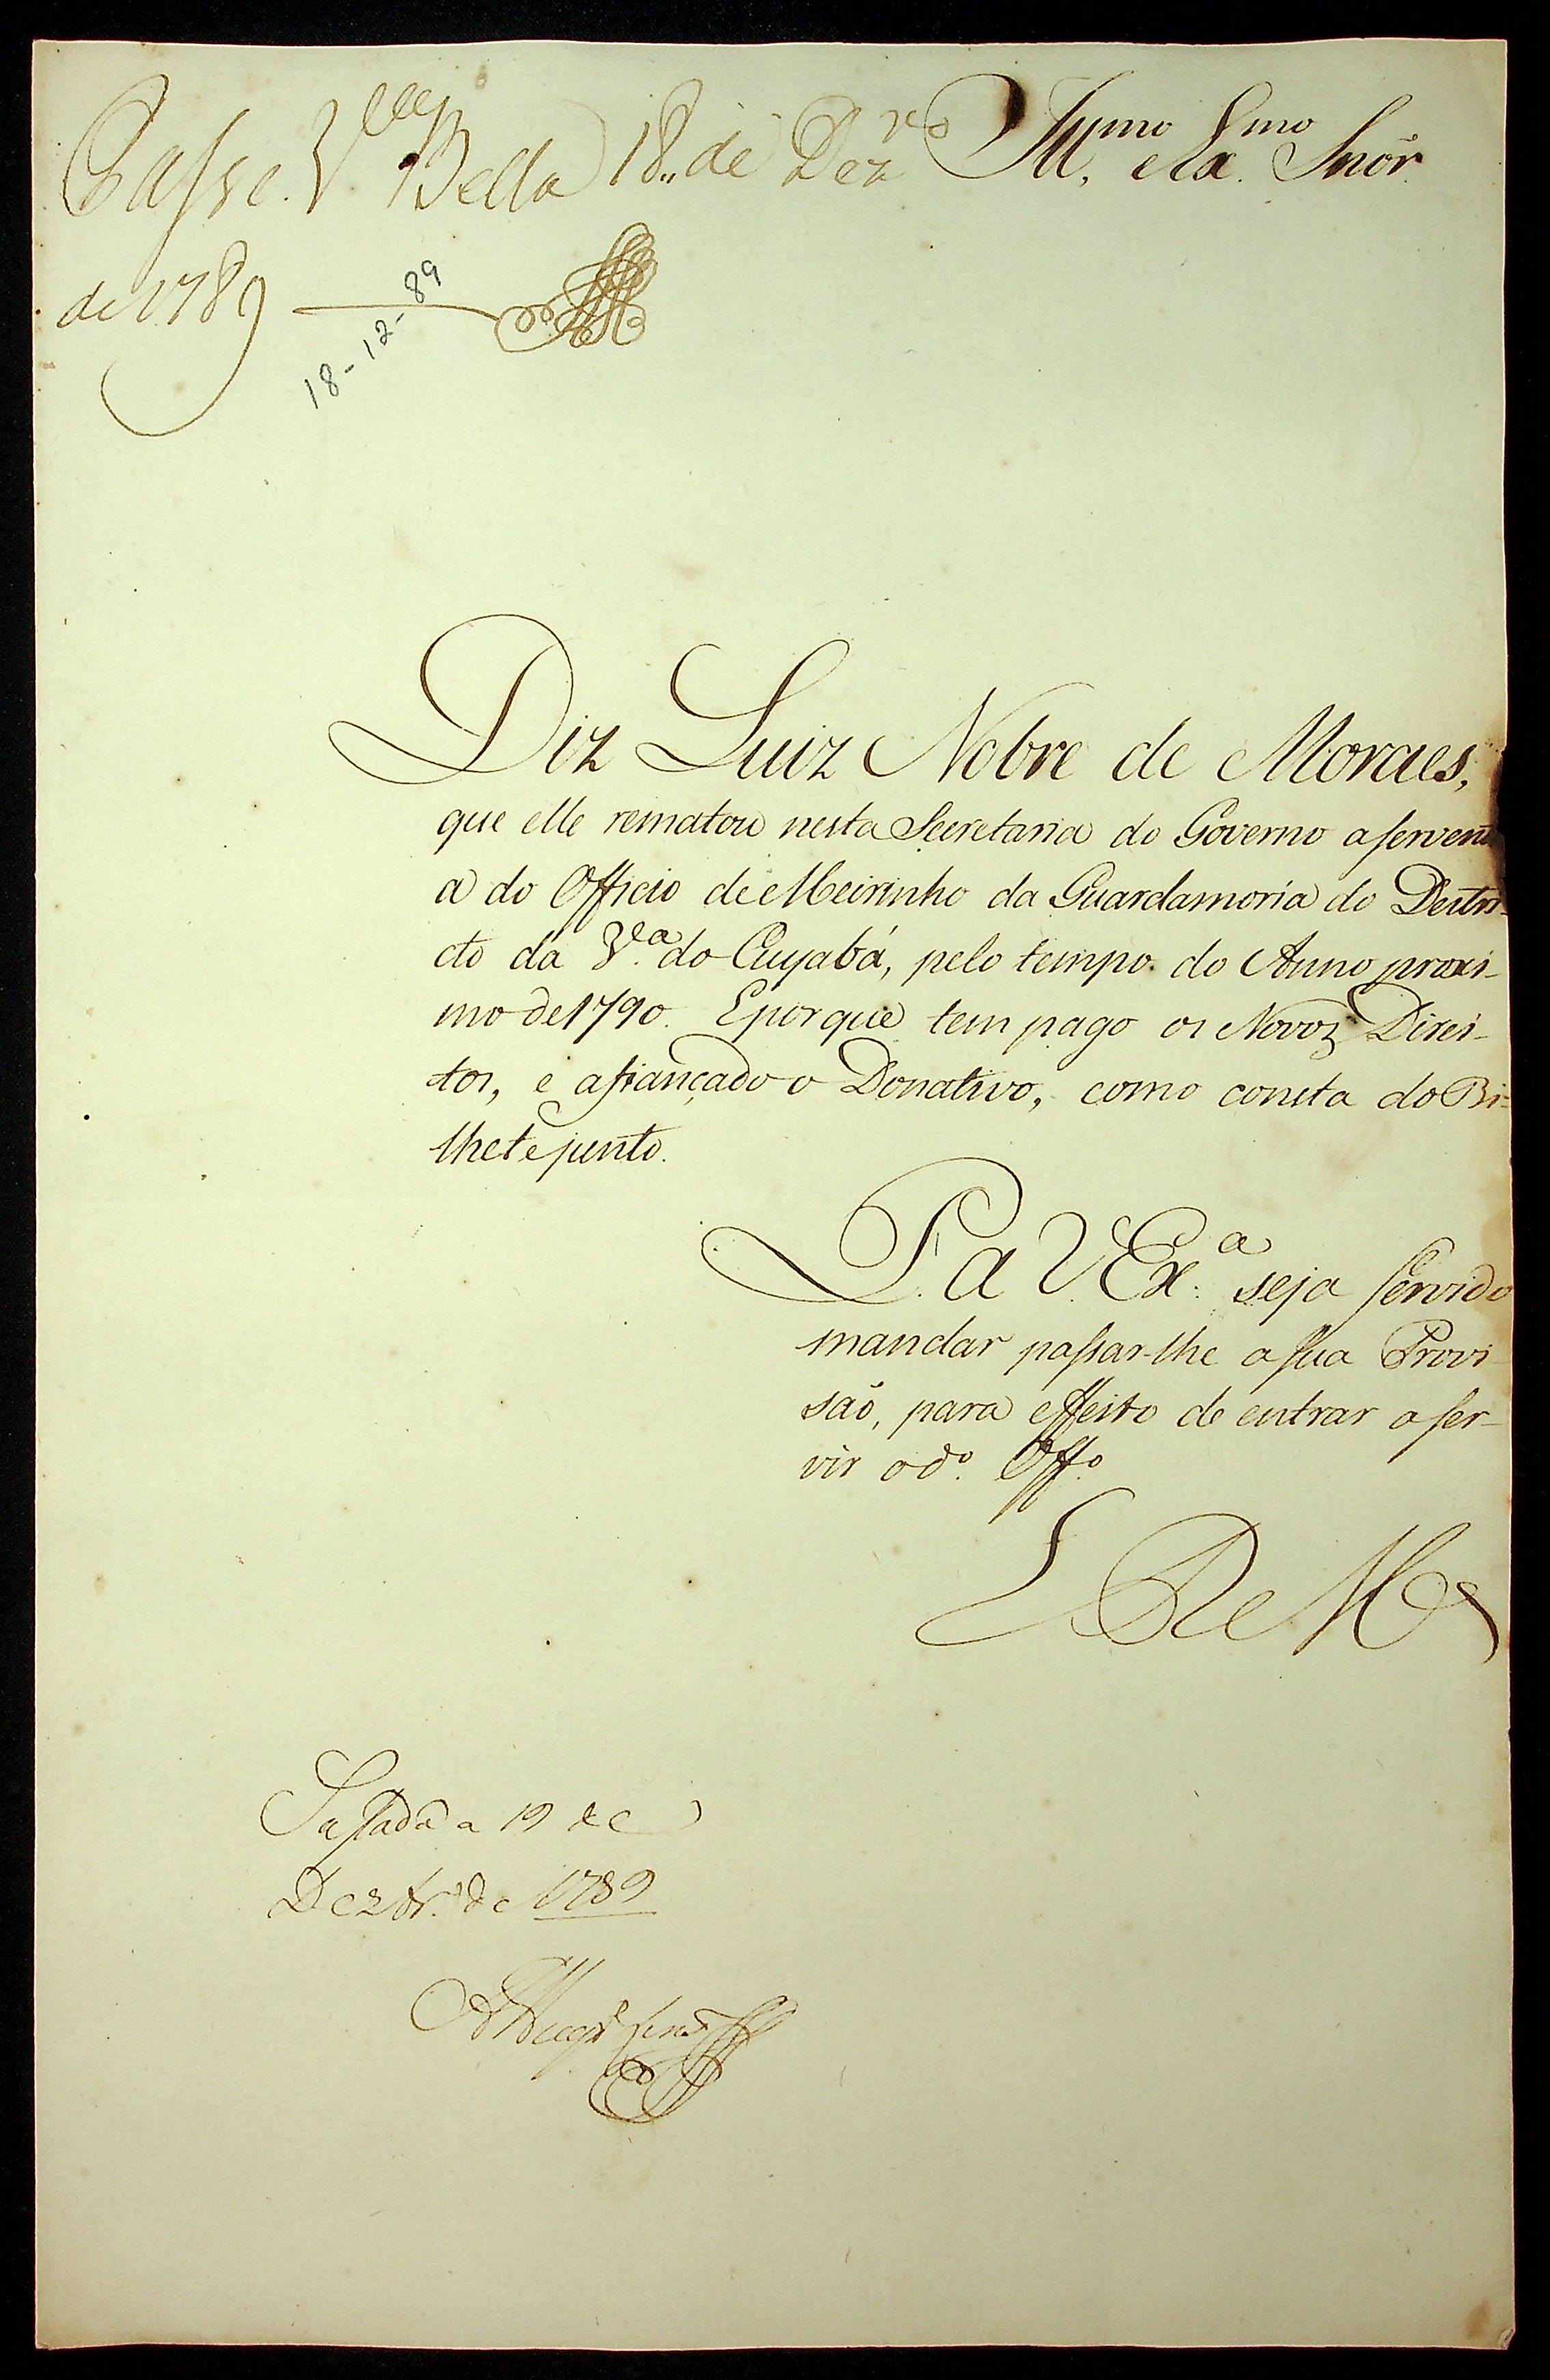 Passe. V.ª Bella 18,, de Dez.ro
de 1789
18-12-89
Ill.mo e Ex.mo Snõr.
Diz Luiz Nobre de Moraes,
que elle rematou nesta Secretaria do Governo a servent
a do Officio de Meirinho da Guardamoria do Destri-
cto da V.ª do Cuyabá, pelo tempo do Anno proxi-
mo de 1790. E porque tem pago os Novos Direi-
tos, e afiançado o Donativo, como consta do Bi-
lhete junto.
P. a V. Ex.ª seja servido
mandar passar-lhe a sua Provi-
são, para effeito de entrar a ser-
vir o d.º Off.º
E R M.ce
Passada a 19 de
Dezbr.º de 1789